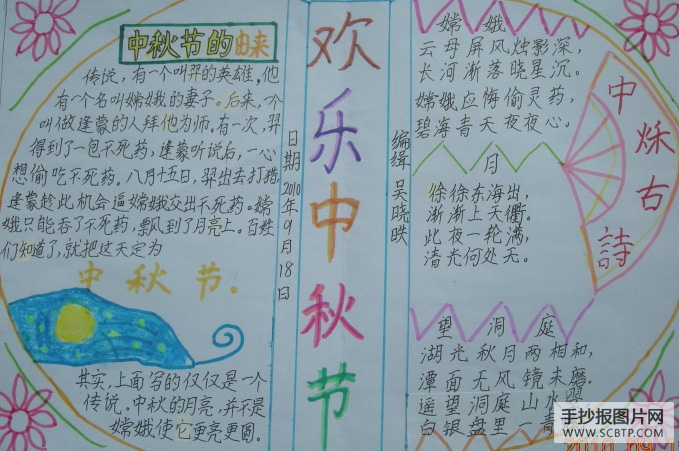 中秋节的由来
传说，有一个叫羿的英雄，他
有一个名叫嫦娥的妻子。后来，一个
叫做逢蒙的人拜他为师，有一次，羿
得到了一包不死药，逢蒙听说后，一心
想偷吃不死药。八月十五日，羿出去打猎，
逢蒙趁此机会逼嫦娥交出不死药。嫦
娥只能吞了不死药，飘风到了月亮上。百姓
们知道了，就把这天定为
中秋节.
其实，上面写的仅仅是一个
传说。中秋的月亮，并不是
嫦娥使它更亮更圆。
日期2010年9月18日
欢乐中秋节
编缉 吴晓昳
嫦娥
云母屏风烛影深，
长河渐落晓星沉。
嫦娥应悔偷灵药，
碧海青天夜夜心。
月
徐徐东海出，
渐渐上天衢。
此夜一轮满，
清光何处无。
望洞庭
湖光秋月两相和，
潭面无风镜未磨。
遥望洞庭山水
白银盘里一青
中秋古詩
手抄报图片网
WWW.SCBTP.COM